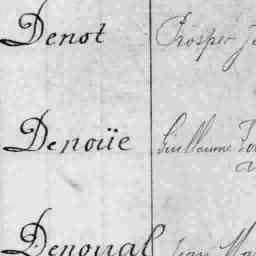 Denot Prosper
Denoüe Guillaume
Denoual Jean